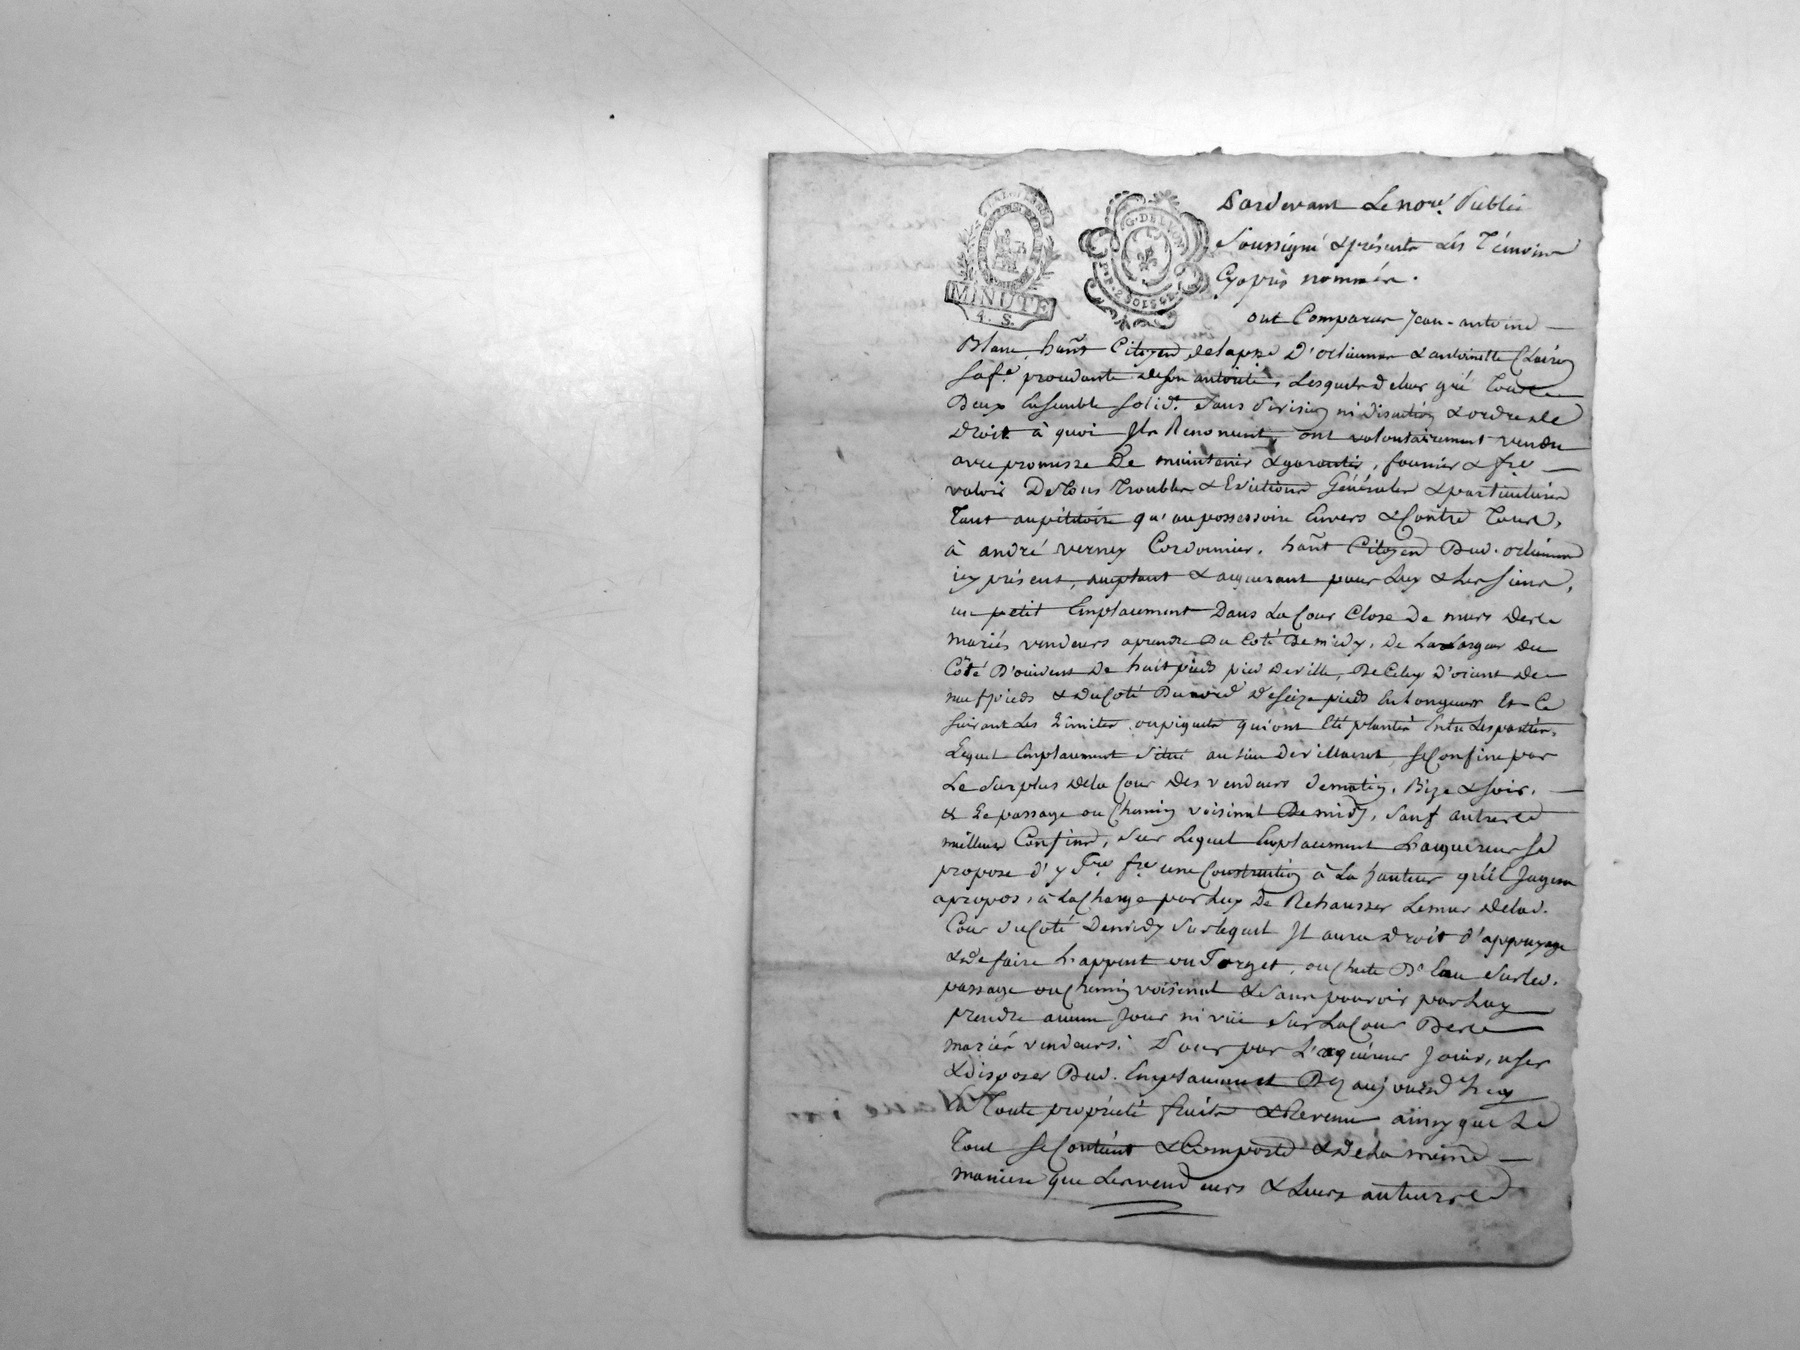 MINUTE
4. S.
G. DE LYON
P. P. 2 SOLS 4 D.
Pardevant Le nore. Public
Soussigné & présents Les Témoins
Cyaprès nommés.
ont Comparus Jean-antoine
Blanc, hañt Citoyen delapsse D'orliennas & antoinette Clairon
Safe. procédante deson autorité, Lesquels deleur gré tous
Deux Ensemble Solidt. Sans division ni discution & ordre de
Droit à quoi Ils Renoncent, ont volontairement vendu
avec promesse De maintenir & garantir, fournir & fre
valoir De tous troubles & Evictions Générales & particulières
tant aupétitoire qu'aupossessoire Envers & Contre tous,
à andré verney Cordonnier, hañt Citoyen Dud. orliennas
icy présent, acceptant & acquerant pour Luy & Les Siens,
un petit Emplacement Dans La Cour Close De murs desd
mariés vendeurs aprendre Du Coté De midy, De La Largeur du
Côté D'occident De huit pieds pied de ville, De Celuy D'orient de
neuf pieds & du Coté Du nord de Seize pieds En Longueur Et Ce
Suivant Les Limites ou piquets qui ont Eté plantés Entre Les parties.
Lequel Emplacement Situé au Lieu de Se Confine par
Le Surplus dela Cour des vendeurs de matin, Bize & Soir,
& Le passage ou Chemin voisinal De midy, Sauf autres
meilleurs Confins, Sur Lequel Emplacement L'acquereur Se
propose d'y fre une Construction à La hauteur qu'il Jugera
apropos, à La Charge par Luy De Rehausser Le mur delad.
Cour du Coté De midy Sur Lequel Il aura Droit d'appuyage
& de faire ou forget, ou Chute D'Eau Sur Led.
passage ou Chemin voisinal & Sans pouvoir par Luy
prendre aucun Jour ni vüe Sur La Cour Desd
mariés vendeurs. Pour par L'acquéreur Jouir, user
& disposer Dud. Emplacement Dez aujourd'huy
En toute propriété fruits & Revenu ainsy que Le
tout Se Contient & Comporte & de La même
maniere que Les vendeurs & Leurs auteurs